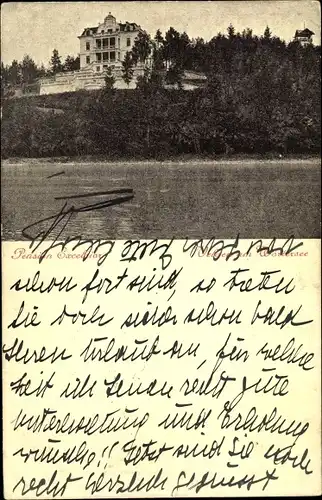 Pension Excelsior am Wörthersee
schon fort sind, so treten
Sie doch sicher schon bald
Ihren Urlaub an, für welche
Zeit ich Ihnen recht gute
Unterhaltung und Erholung
wünsche!! Jetzt sind Sie noch
recht herzlich gegrüsst